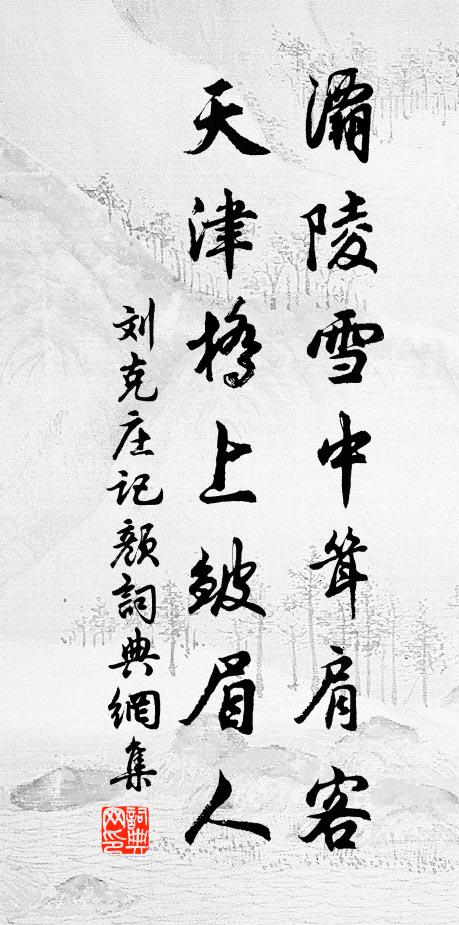 灞陵雪中耸肩客
天津橋上皱眉人
刘克庄记顏詞典網集
詞典网印